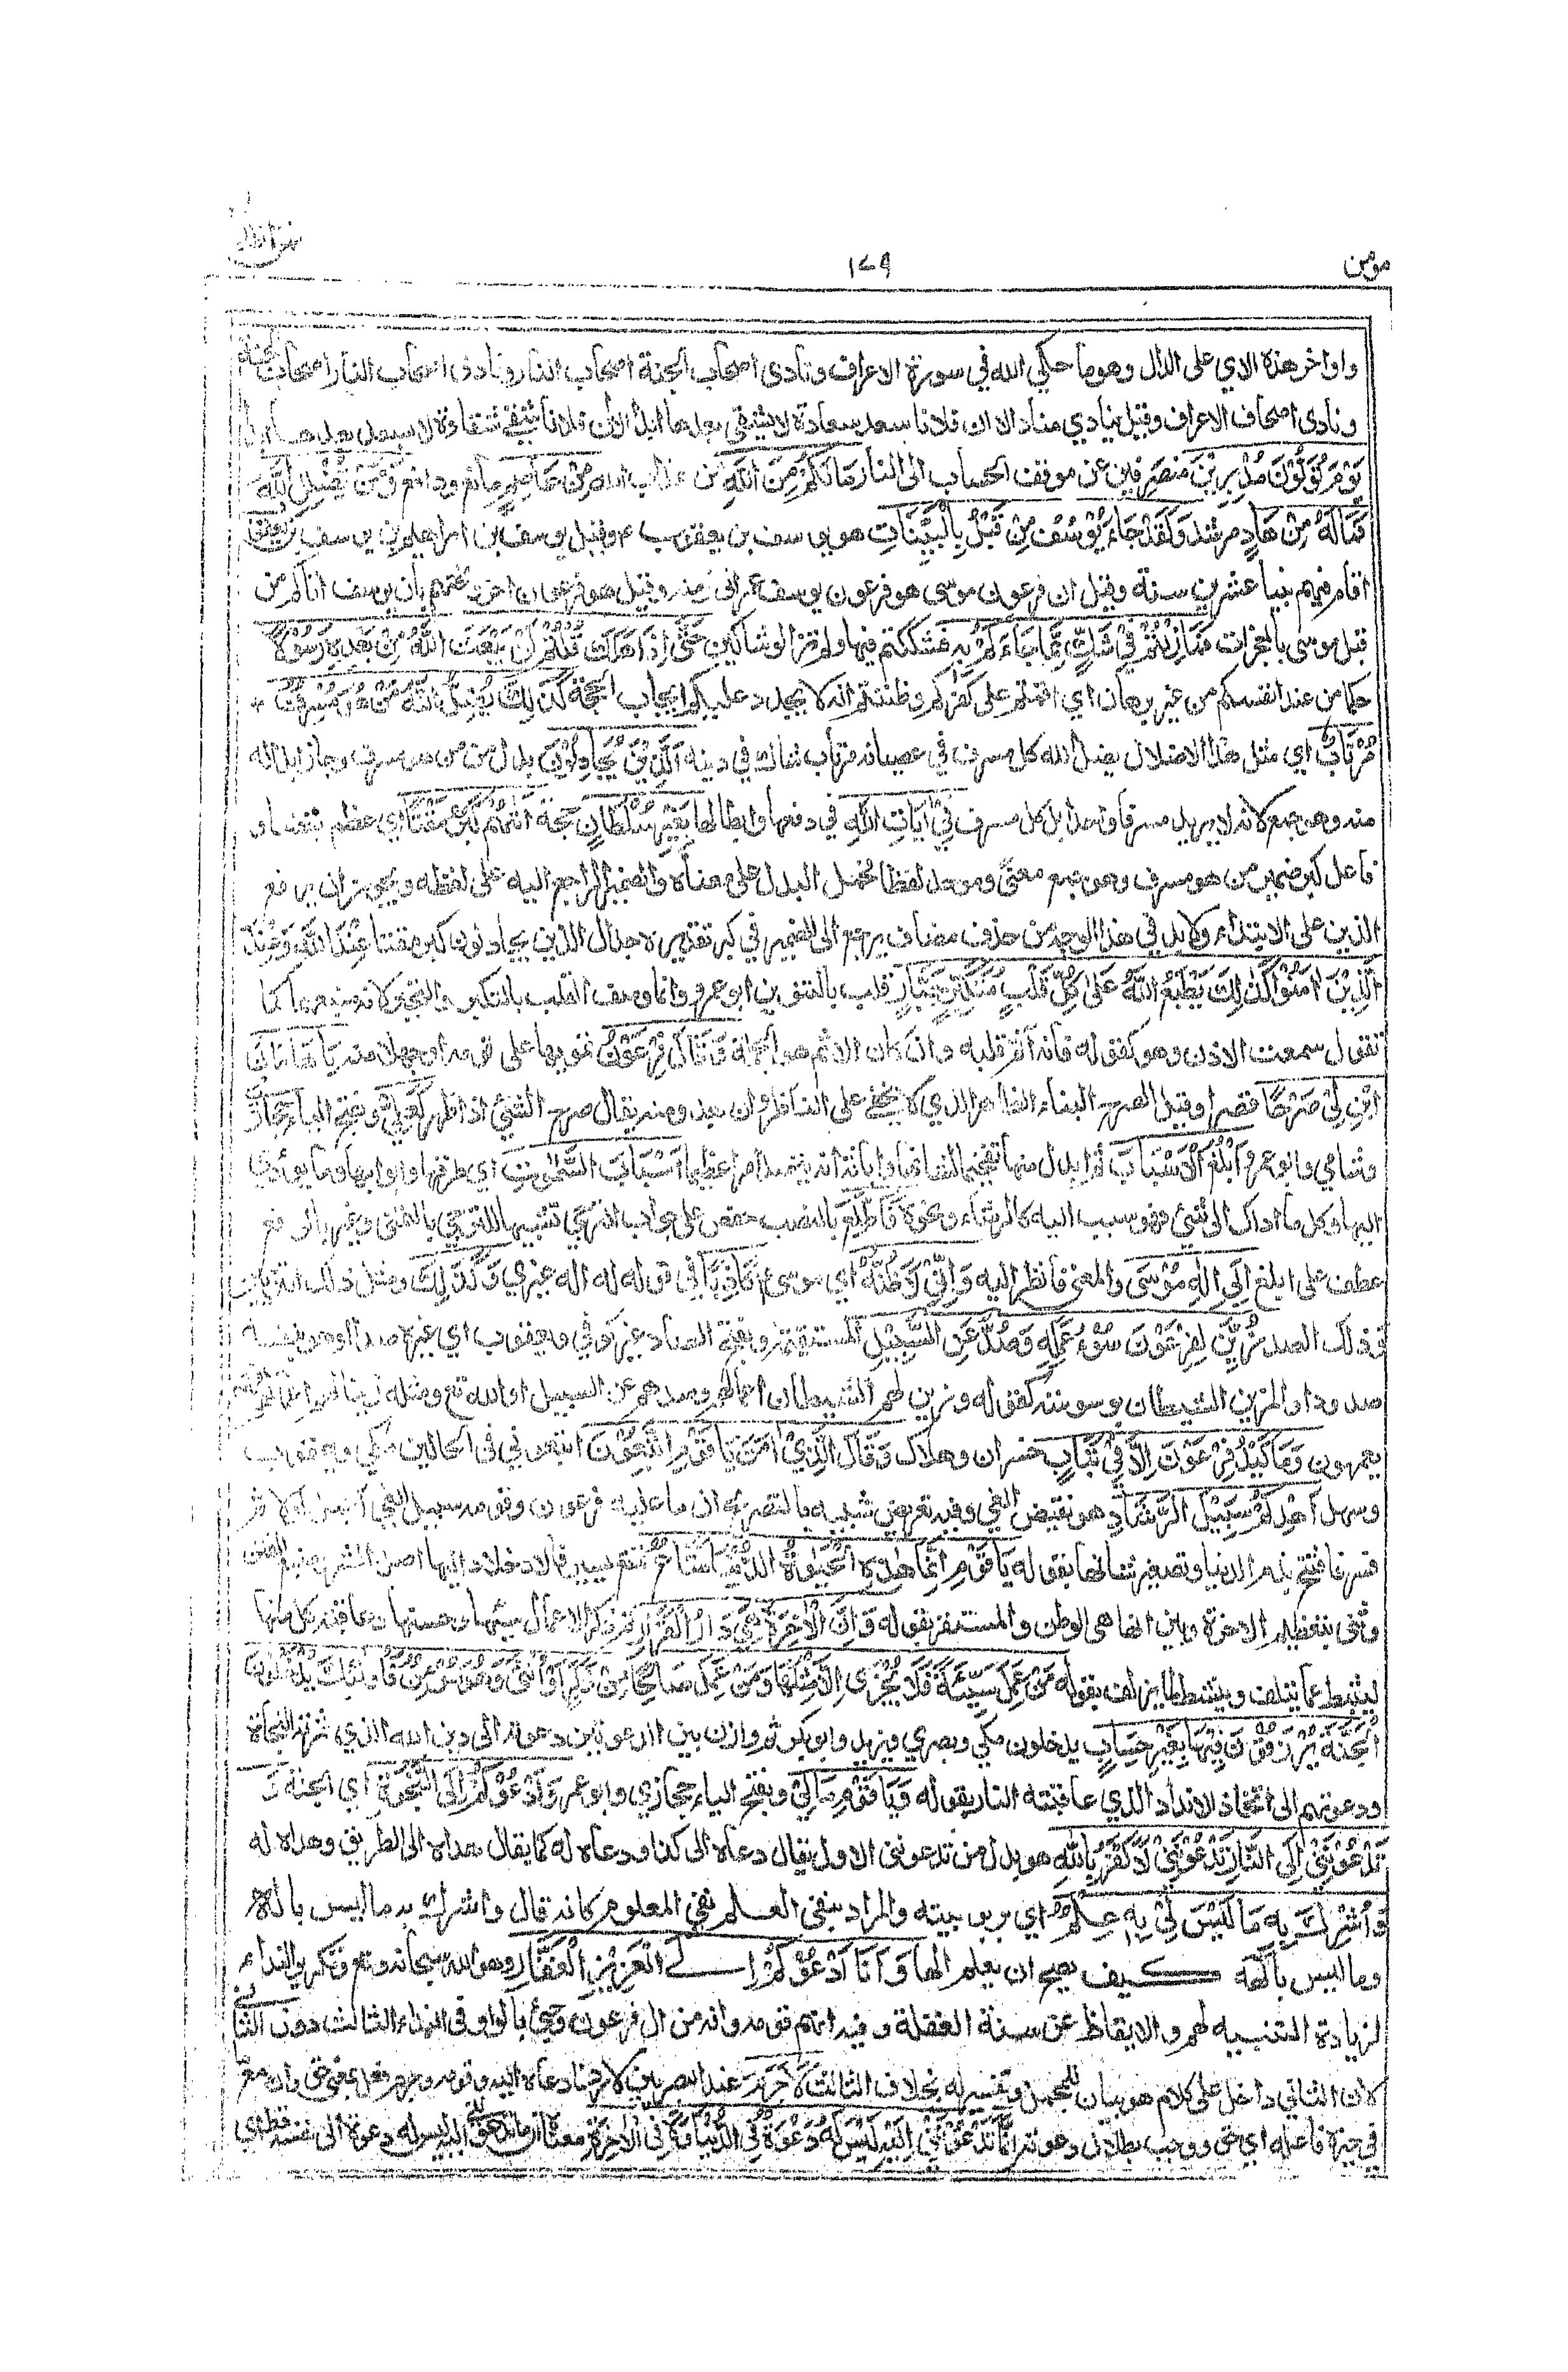 مومن
١٤٩
واواخر هذه الاي على الدال وهو ما حكي الله في سورة الاعراف ونادى اصحاب الجنة اصحاب النار ونادى اصحاب النار اصحاب الجنة
ونادى اصحاب الاعراف وقيل ينادي مناد الا ان فلانا سعد سعادة لا يشقى بعدها ابدا الا ان فلانا شقي شقاوة لا يسعد بعدها ابدا
يَوْمَ تُوَلُّوْنَ مُدْبِرِيْنَ منصرفين عن موقف الحساب الى النار مَالَكُمْ مِّنَ اللّٰهِ من عذاب الله مِنْ عَاصِمٍ مانع ودافع وَمَنْ يُّضْلِلِ اللّٰهُ
فَمَا لَهٗ مِنْ هَادٍ مرشد وَلَقَدْ جَاءَ يُوْسُفُ مِنْ قَبْلُ بِالْبَيِّنَاتِ هو يوسف بن يعقوب ع وقيل يوسف بن افراهيم بن يوسف بن يعقوب
اقام فيهم نبيا عشرين سنة وقيل ان فرعون موسى هو فرعون يوسف عمر الى زمنه وقيل هو فرعون اخر وبخهم بان يوسف اتاكم من
قبل موسى بالمعجزات فَمَا زِلْتُمْ فِيْ شَكٍّ مِّمَّا جَاءَكُمْ بِهٖ فشككتم فيها ولم تزالوا شاكين حَتّٰى اِذَا هَلَكَ قُلْتُمْ لَنْ يَّبْعَثَ اللّٰهُ مِنْ بَعْدِهٖ رَسُوْلًا
حكما من عند انفسكم من غير برهان اي اقمتم على كفركم وظننتم انه لا يجدد عليكم ايجاب الحجة كَذٰلِكَ يُضِلُّ اللّٰهُ مَنْ هُوَ مُسْرِفٌ
مُّرْتَابٌ اي مثل هذا الاضلال يضل الله كل مسرف في عصيانه مرتاب شاك في دينه اَلَّذِيْنَ يُجَادِلُوْنَ بدل من من هو مسرف وجاز ابداله
منه وهو جمع لانه لا يريد مسرفا واحدا بل كل مسرف فِيْ اٰيَاتِ اللّٰهِ في دفعها وابطالها بِغَيْرِ سُلْطَانٍ حجة اَتٰهُمْ كَبُرَ مَقْتًا اي عظم بغضا و
فاعل كبر ضمير من هو مسرف وهو جمع معنى وموحد لفظا فحمل البدل على معناه والضمير الراجع اليه على لفظه ويجوز ان يرفع
الذين على الابتداء ولا بد في هذا الوجه من حذف مضاف يرجع الى الضمير في كبر تقديره جدال الذين يجادلون كبر مقتا عِنْدَ اللّٰهِ وَعِنْدَ
الَّذِيْنَ اٰمَنُوْا كَذٰلِكَ يَطْبَعُ اللّٰهُ عَلٰى كُلِّ قَلْبِ مُتَكَبِّرٍ جَبَّارٍ قلب بالتنوين ابو عمرو وانما وصف القلب بالتكبر والتجبر لانه منبعهما كما
تقول سمعت الاذن وهو كقوله فانه اثم قلبه وان كان الاثم هو الجملة وَقَالَ فِرْعَوْنُ تمويها على قومه او جهلا منه يَا هَامَانُ
ابْنِ لِيْ صَرْحًا قصرا وقيل الصرح البناء الظاهر الذي لا يخفى على الناظر وان بعد ومنه يقال صرح الشئ اذا ظهر لَّعَلِّيْ وبفتح الياء حجازي
وشامي وابو عمرو اَبْلُغُ الْاَسْبَابَ ثم ابدل منها تفخيما لشانها وابانة انه يقصد امرا عظيما اَسْبَابَ السَّمٰوٰتِ اي طرقها وابوابها وما يؤدي
اليها وكل ما اداك الى شئ فهو سبب اليه كالرشاء ونحوه فَاَطَّلِعَ بالنصب حفص على جواب الترجي تشبيها للترجي بالتمني وغيره بالرفع
عطف على ابلغ اِلٰى اِلٰهِ مُوْسٰى والمعنى فانظر اليه وَاِنِّيْ لَاَظُنُّهٗ اي موسى ع كَاذِبًا في قوله له اله غيري وَكَذٰلِكَ ومثل ذلك التزيين
وذلك الصد زُيِّنَ لِفِرْعَوْنَ سُوْءُ عَمَلِهٖ وَصُدَّ عَنِ السَّبِيْلِ المستقيم وبفتح الصاد غير كوفي ويعقوب اي غيره صدا او هو بنفسه
صدودا والمزين الشيطان بوسوسته كقوله وزين لهم الشيطان اعمالهم وصدهم عن السبيل او الله تع ومثله زينا لهم اعمالهم فهم
يعمهون وَمَا كَيْدُ فِرْعَوْنَ اِلَّا فِيْ تَبَابٍ خسران وهلاك وَقَالَ الَّذِيْ اٰمَنَ يَا قَوْمِ اتَّبِعُوْنِ اتبعوني في الحالين مكي ويعقوب
وسهل اَهْدِكُمْ سَبِيْلَ الرَّشَادِ هو نقيض الغي وفيه تعريض شبيه بالتصريح ان ما عليه فرعون وقومه سبيل الغي اجمل اولا ثم
فسر فافتتح بذم الدنيا وتصغير شانها بقوله يَا قَوْمِ اِنَّمَا هٰذِهِ الْحَيٰوةُ الدُّنْيَا مَتَاعٌ تمتع يسير فالاخلاد اليها اصل الشر ومنبع الفتن
وثنى بتعظيم الاخرة وبين انها هي الوطن والمستقر بقوله وَاِنَّ الْاٰخِرَةَ هِيَ دَارُ الْقَرَارِ ثم ذكر الاعمال سيئها وحسنها وعاقبة كل منها
ليثبط عما يتلف وينشط لما يزلف بقوله مَنْ عَمِلَ سَيِّئَةً فَلَا يُجْزٰى اِلَّا مِثْلَهَا وَمَنْ عَمِلَ صَالِحًا مِّنْ ذَكَرٍ اَوْ اُنْثٰى وَهُوَ مُؤْمِنٌ فَاُولٰئِكَ يَدْخُلُوْنَ
الْجَنَّةَ يُرْزَقُوْنَ فِيْهَا بِغَيْرِ حِسَابٍ يدخلون مكي وبصري ويزيد وابو بكر ثم وازن بين الدعوتين دعوته الى دين الله الذي ثمرته النجاة
ودعوتهم الى اتخاذ الانداد الذي عاقبته النار بقوله وَيَا قَوْمِ مَا لِيْ وبفتح الياء حجازي وابو عمرو اَدْعُوْكُمْ اِلَى النَّجٰوةِ اي الجنة وَ
تَدْعُوْنَنِيْ اِلَى النَّارِ تَدْعُوْنَنِيْ لِاَكْفُرَ بِاللّٰهِ هو بدل من تدعونني الاول يقال دعاه الى كذا ودعاه له كما يقال هداه الى الطريق وهداه له
وَاُشْرِكَ بِهٖ مَا لَيْسَ لِيْ بِهٖ عِلْمٌ اي بربوبيته والمراد بنفي العلم نفي المعلوم كانه قال واشرك به ما ليس باله
وما ليس باله كيف يصح ان يعلم الها وَاَنَا اَدْعُوْكُمْ اِلَى الْعَزِيْزِ الْغَفَّارِ وهو الله سبحانه وتع وتكرير النداء
لزيادة التنبيه لهم والايقاظ عن سنة الغفلة وفيه انهم قومه وانه من ال فرعون وجئ بالواو في النداء الثالث دون الثاني
لان الثاني داخل على كلام هو بيان للمجمل وتفسير له بخلاف الثالث لَا جَرَمَ عند البصريين لا رد لما دعاه اليه وقومه وجرم فعل بمعنى حق وان مع
في حيزه فاعله اي حق ووجب بطلان دعوته اَنَّمَا تَدْعُوْنَنِيْ اِلَيْهِ لَيْسَ لَهٗ دَعْوَةٌ فِي الدُّنْيَا وَلَا فِي الْاٰخِرَةِ معناه ان ما تدعونني اليه ليس له دعوة الى نفسه قط اي